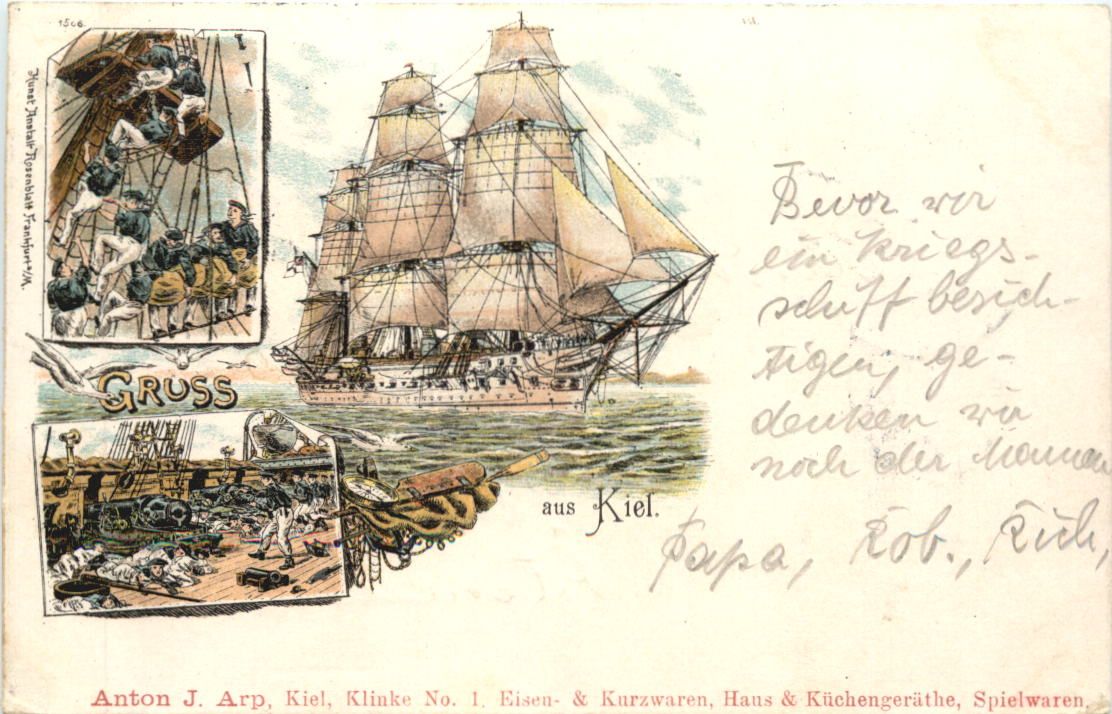 1506
Kunst Anstalt Rosenblatt Frankfurt a/M.
GRUSS
aus Kiel.
Bevor wir
ein Kriegs-
schiff besich-
tigen, ge-
denken wir
noch der Mannen
Papa, Rob., Rich,
Anton J. Arp, Kiel, Klinke No. 1. Eisen- & Kurzwaren, Haus & Küchengeräthe, Spielwaren.